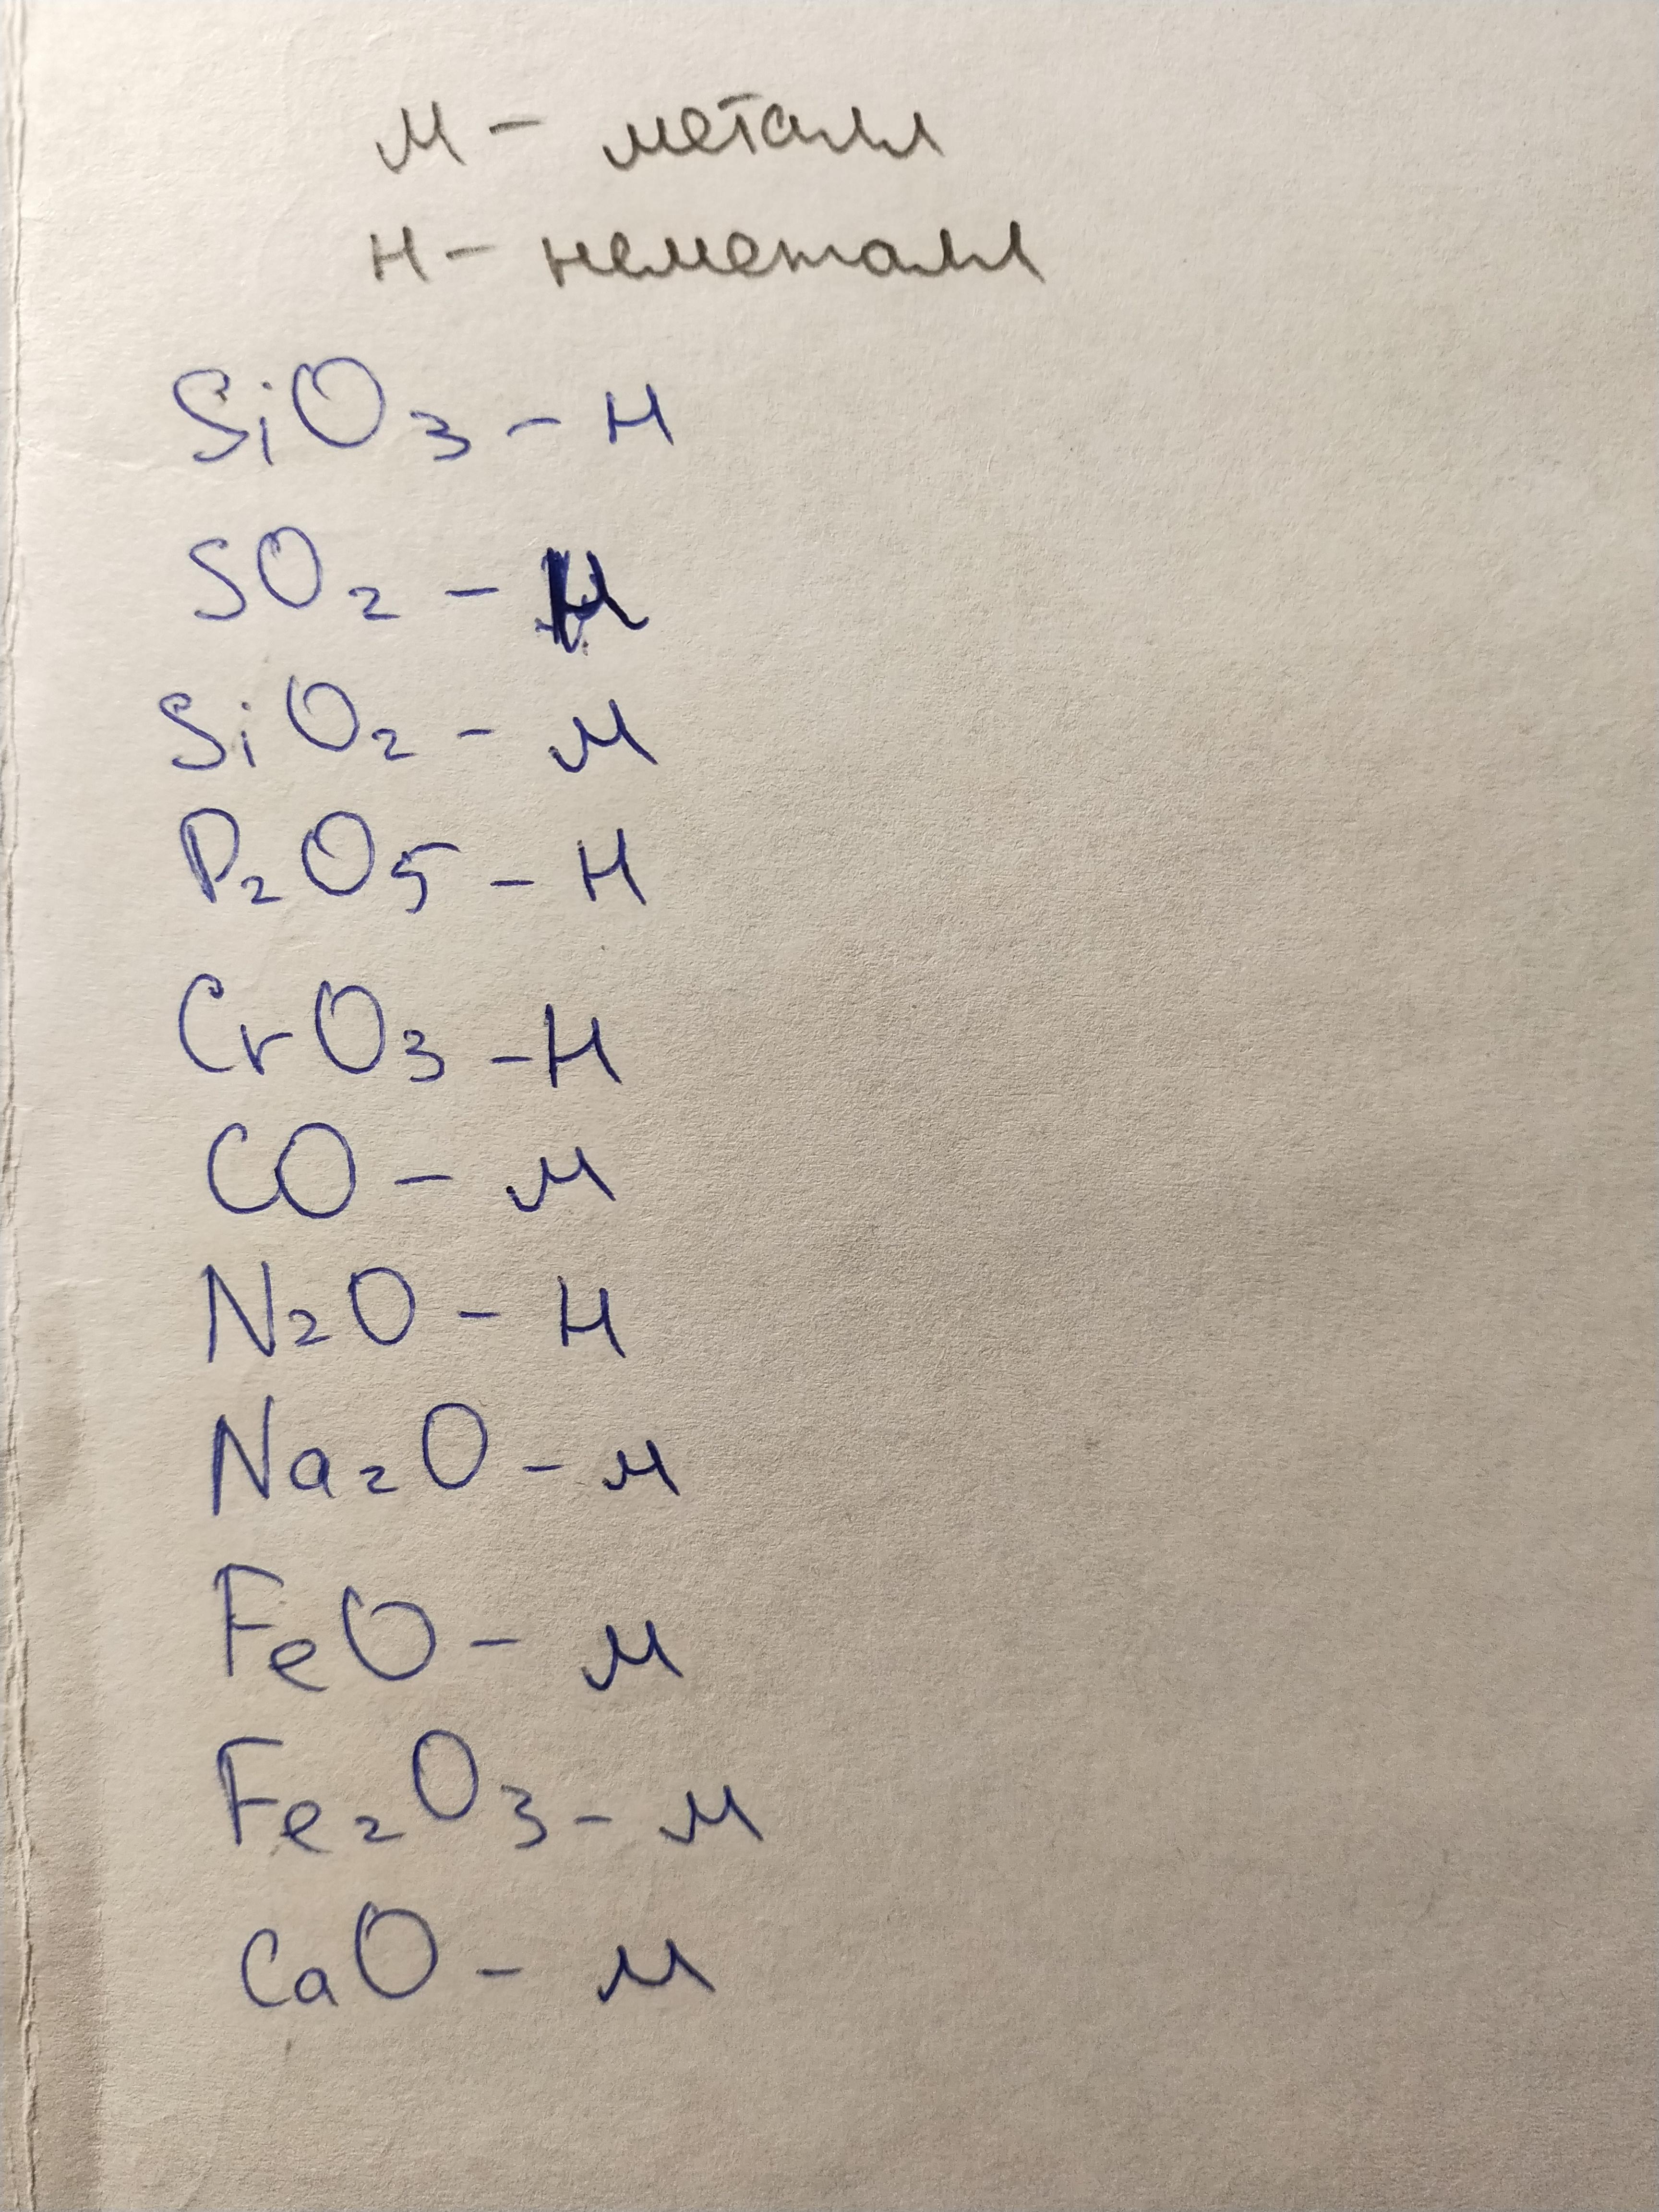 М - металл
Н - неметалл
SiO3 - Н
SO2 - Н
SiO2 - М
P2O5 - Н
CrO3 - Н
CO - М
N2O - Н
Na2O - М
FeO - М
Fe2O3 - М
CaO - М